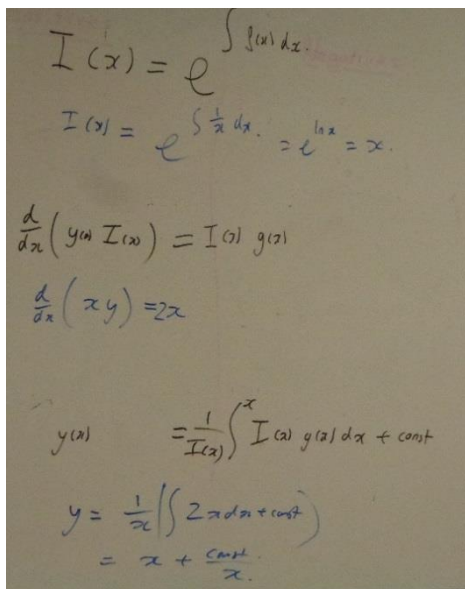 I(x) = e^{∫ f(x) dx.}
I(x) = e^{∫ 1/x dx.} = e^{ln x} = x.
d/dx (y(x) I(x)) = I(x) g(x)
d/dx (xy) = 2x
y(x) = 1/I(x) ∫^x I(x) g(x) dx + const
y = 1/x (∫ 2x dx + const)
= x + const./x.